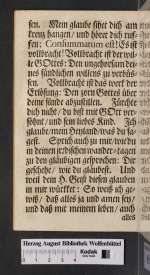 sen. Mein glaube sihet dich am
kreuz hangen/ und höret dich ruf-
fen: Consummatum est! Es ist
vollbracht! Vollbracht ist der wil-
le GOttes: Den ungehorsam des
sündlichen willens zu verbüs-
sen. Vollbracht ist das werk der
Erlösung: Den zorn Gottes über
deine sünde abzustillen. Fürchte
dich nicht/ du bist mit GOtt ver-
söhnt/ und sein liebes Kind. Ich
glaube/ mein Heyland/ was du sa-
gest. Sprich auch zu mir/ was du
in deinen irdischen wunder-tagen
zu den gläubigen gesprochen: Dir
geschehe/ wie du glaubest. Und
weil dein H. Geist diesen glauben
in mir würcket: So weiß ich ge-
wiß/ daß alles ja und amen sey/
und daß mit meinem leben/ auch
alles
Herzog August Bibliothek Wolfenbüttel
Kodak